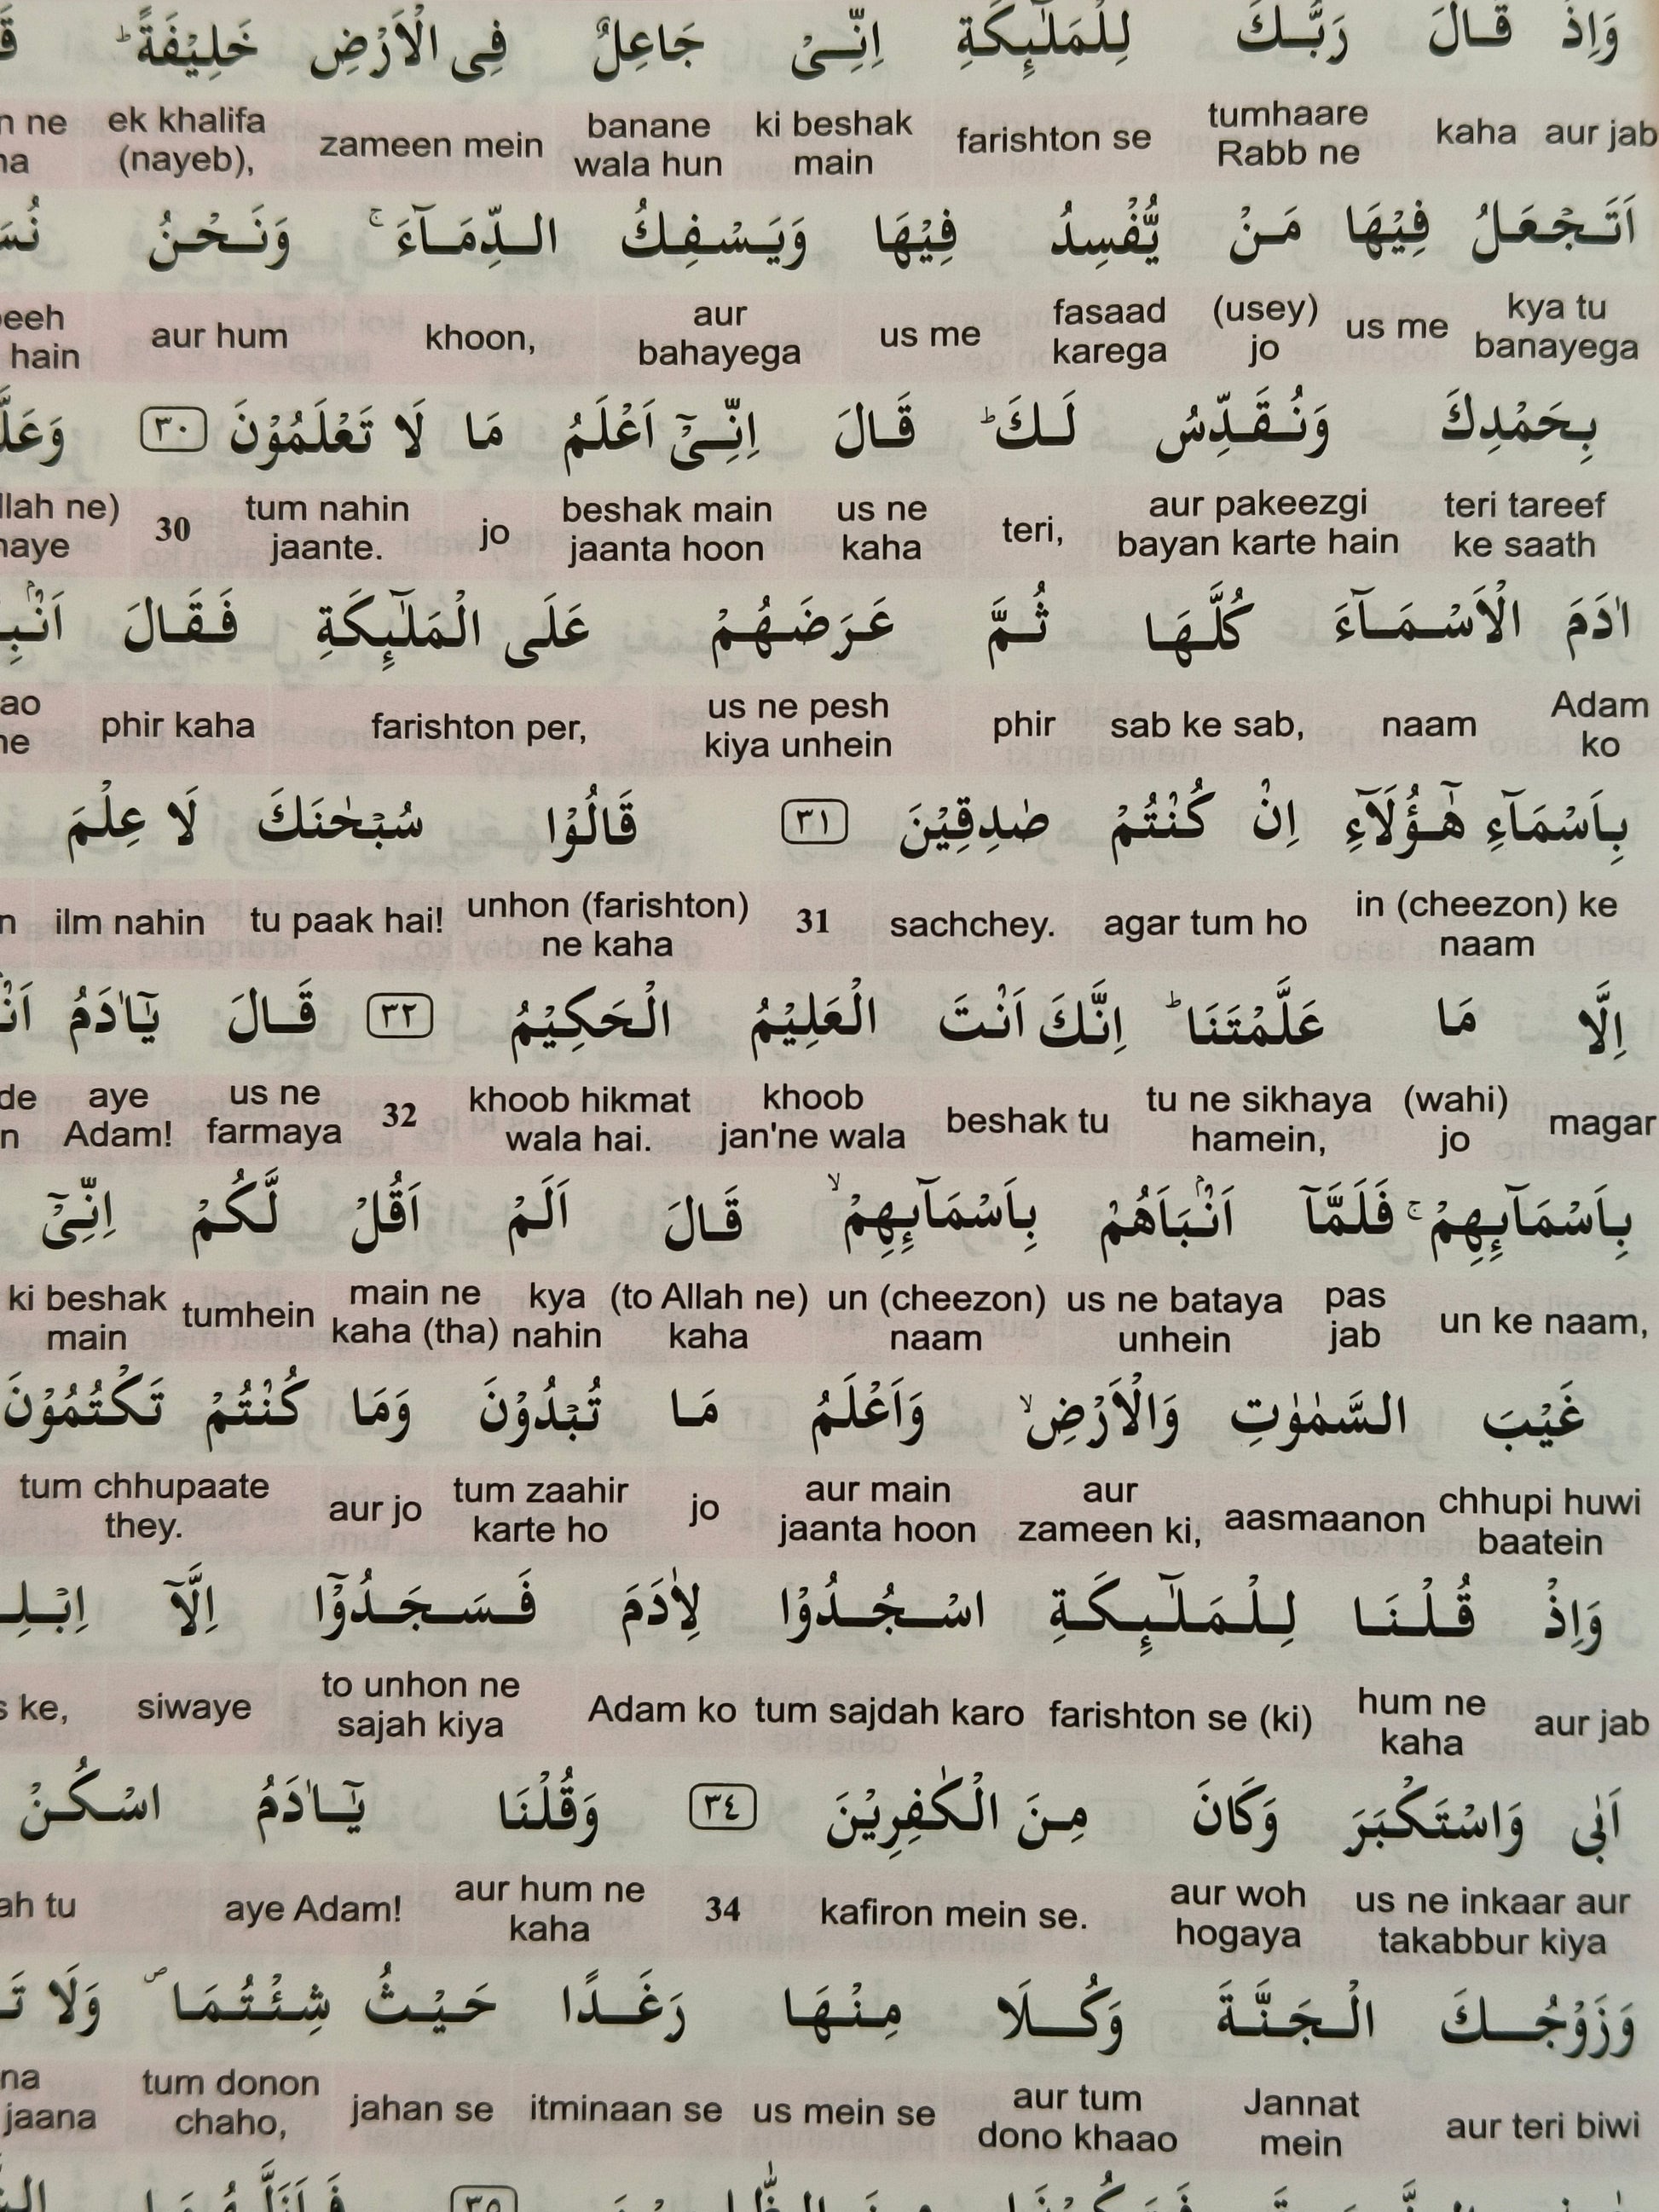 وَاِذْ قَالَ رَبُّكَ لِلْمَلٰٓئِكَةِ اِنِّىْ جَاعِلٌ فِى الْاَرْضِ خَلِيْفَةً ؕ
aur jab kaha tumhaare Rabb ne farishton se ki beshak main banane wala hun zameen mein ek khalifa (nayeb), ne
اَتَجْعَلُ فِيْهَا مَنْ يُّفْسِدُ فِيْهَا وَيَسْفِكُ الدِّمَآءَ ۚ وَنَحْنُ
kya tu banayega us me (usey) jo fasaad karega us me aur bahayega khoon, aur hum hain
بِحَمْدِكَ وَنُقَدِّسُ لَكَ ؕ قَالَ اِنِّىْٓ اَعْلَمُ مَا لَا تَعْلَمُوْنَ ٣٠
teri tareef ke saath aur pakeezgi bayan karte hain teri, us ne kaha beshak main jaanta hoon jo tum nahin jaante. 30 ne)
اٰدَمَ الْاَسْمَآءَ كُلَّهَا ثُمَّ عَرَضَهُمْ عَلَى الْمَلٰٓئِكَةِ فَقَالَ
Adam ko naam sab ke sab, phir us ne pesh kiya unhein farishton per, phir kaha
بِاَسْمَآءِ هٰٓؤُلَآءِ اِنْ كُنْتُمْ صٰدِقِيْنَ ٣١ قَالُوْا سُبْحٰنَكَ لَا عِلْمَ
in (cheezon) ke naam agar tum ho sachchey. 31 unhon (farishton) ne kaha tu paak hai! ilm nahin
اِلَّا مَا عَلَّمْتَنَا ؕ اِنَّكَ اَنْتَ الْعَلِيْمُ الْحَكِيْمُ ٣٢ قَالَ يٰٓاٰدَمُ
magar (wahi) jo tu ne sikhaya hamein, beshak tu khoob jan'ne wala khoob hikmat wala hai. 32 us ne farmaya aye Adam!
بِاَسْمَآئِهِمْ ۚ فَلَمَّآ اَنْۢبَاَهُمْ بِاَسْمَآئِهِمْ ۙ قَالَ اَلَمْ اَقُلْ لَّكُمْ اِنِّىْٓ
un ke naam, pas jab us ne bataya unhein un (cheezon) naam (to Allah ne) kaha kya nahin main ne kaha (tha) tumhein ki beshak main
غَيْبَ السَّمٰوٰتِ وَالْاَرْضِ ۙ وَاَعْلَمُ مَا تُبْدُوْنَ وَمَا كُنْتُمْ تَكْتُمُوْنَ
chhupi huwi baatein aasmaanon aur zameen ki, aur main jaanta hoon jo tum zaahir karte ho aur jo tum chhupaate they.
وَاِذْ قُلْنَا لِلْمَلٰٓئِكَةِ اسْجُدُوْا لِاٰدَمَ فَسَجَدُوْٓا اِلَّآ
aur jab hum ne kaha farishton se (ki) tum sajdah karo Adam ko to unhon ne sajah kiya siwaye ke,
اَبٰى وَاسْتَكْبَرَ وَكَانَ مِنَ الْكٰفِرِيْنَ ٣٤ وَقُلْنَا يٰٓاٰدَمُ اسْكُنْ
us ne inkaar aur takabbur kiya aur woh hogaya kafiron mein se. 34 aur hum ne kaha aye Adam! tu
وَزَوْجُكَ الْجَنَّةَ وَكُلَا مِنْهَا رَغَدًا حَيْثُ شِئْتُمَا ۪ وَلَا
aur teri biwi Jannat mein aur tum dono khaao us mein se itminaan se jahan se tum donon chaho, na jaana